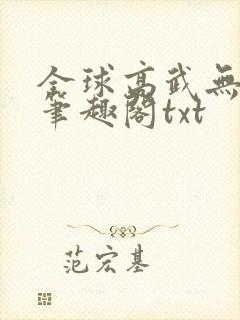 全球高武無
筆趣閣txt
范宏基